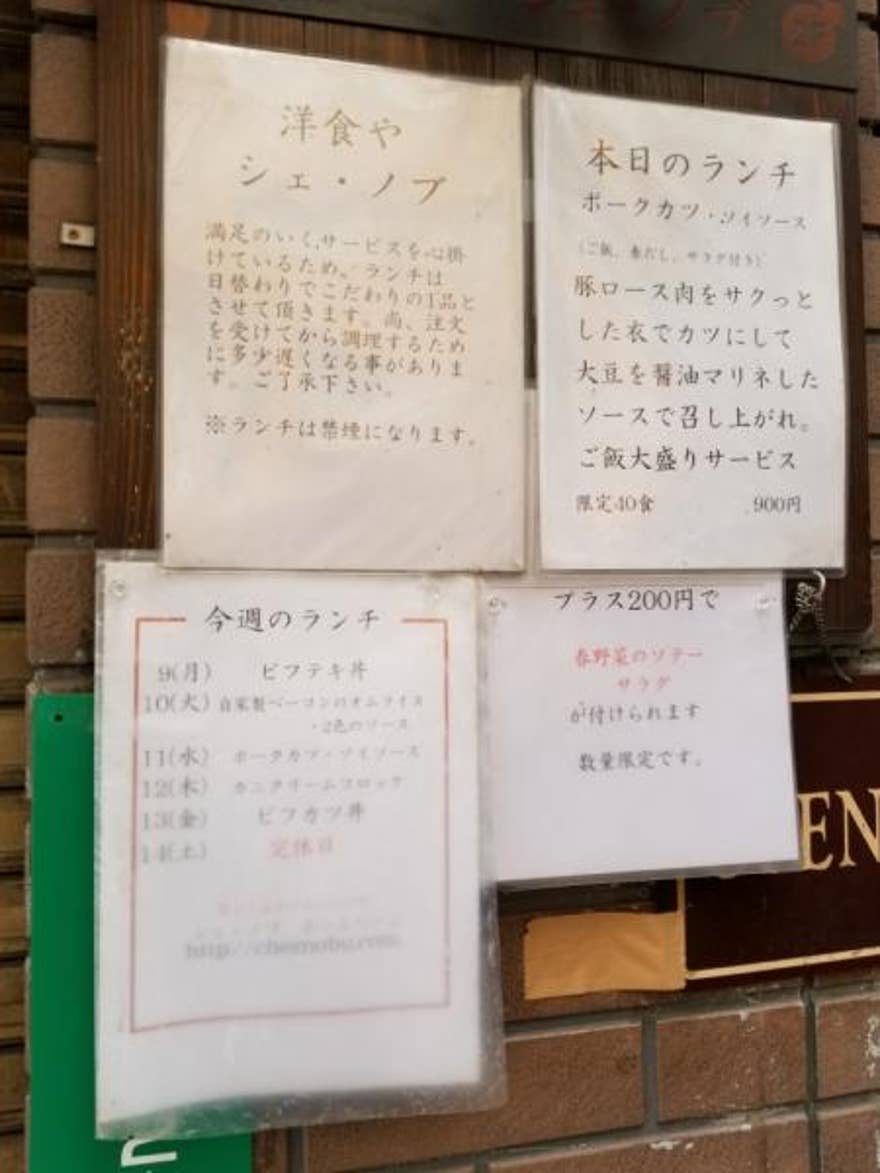 シェ・ノブ
洋食や
シェ・ノブ
満足のいくサービスを心掛
けているため、ランチは
日替わりでこだわりの1品と
させて頂きます。尚、注文
を受けてから調理するため
に多少遅くなる事がありま
す。ご了承下さい。
※ランチは禁煙になります。
本日のランチ
ポークカツ・ソイソース
(ご飯、サラダ付き)
豚ロース肉をサクっと
した衣でカツにして
大豆を醤油マリネした
ソースで召し上がれ。
ご飯大盛りサービス
限定40食 900円
今週のランチ
9(月) ビフテキ丼
10(火) 自家製ベーコンのオムライス
・2色のソース
11(水) ポークカツ・ソイソース
12(木) カニクリームコロッケ
13(金) ビフカツ丼
14(土) 定休日
http://cheznobu.com
プラス200円で
春野菜のソテー
サラダ
が付けられます
数量限定です。
EN